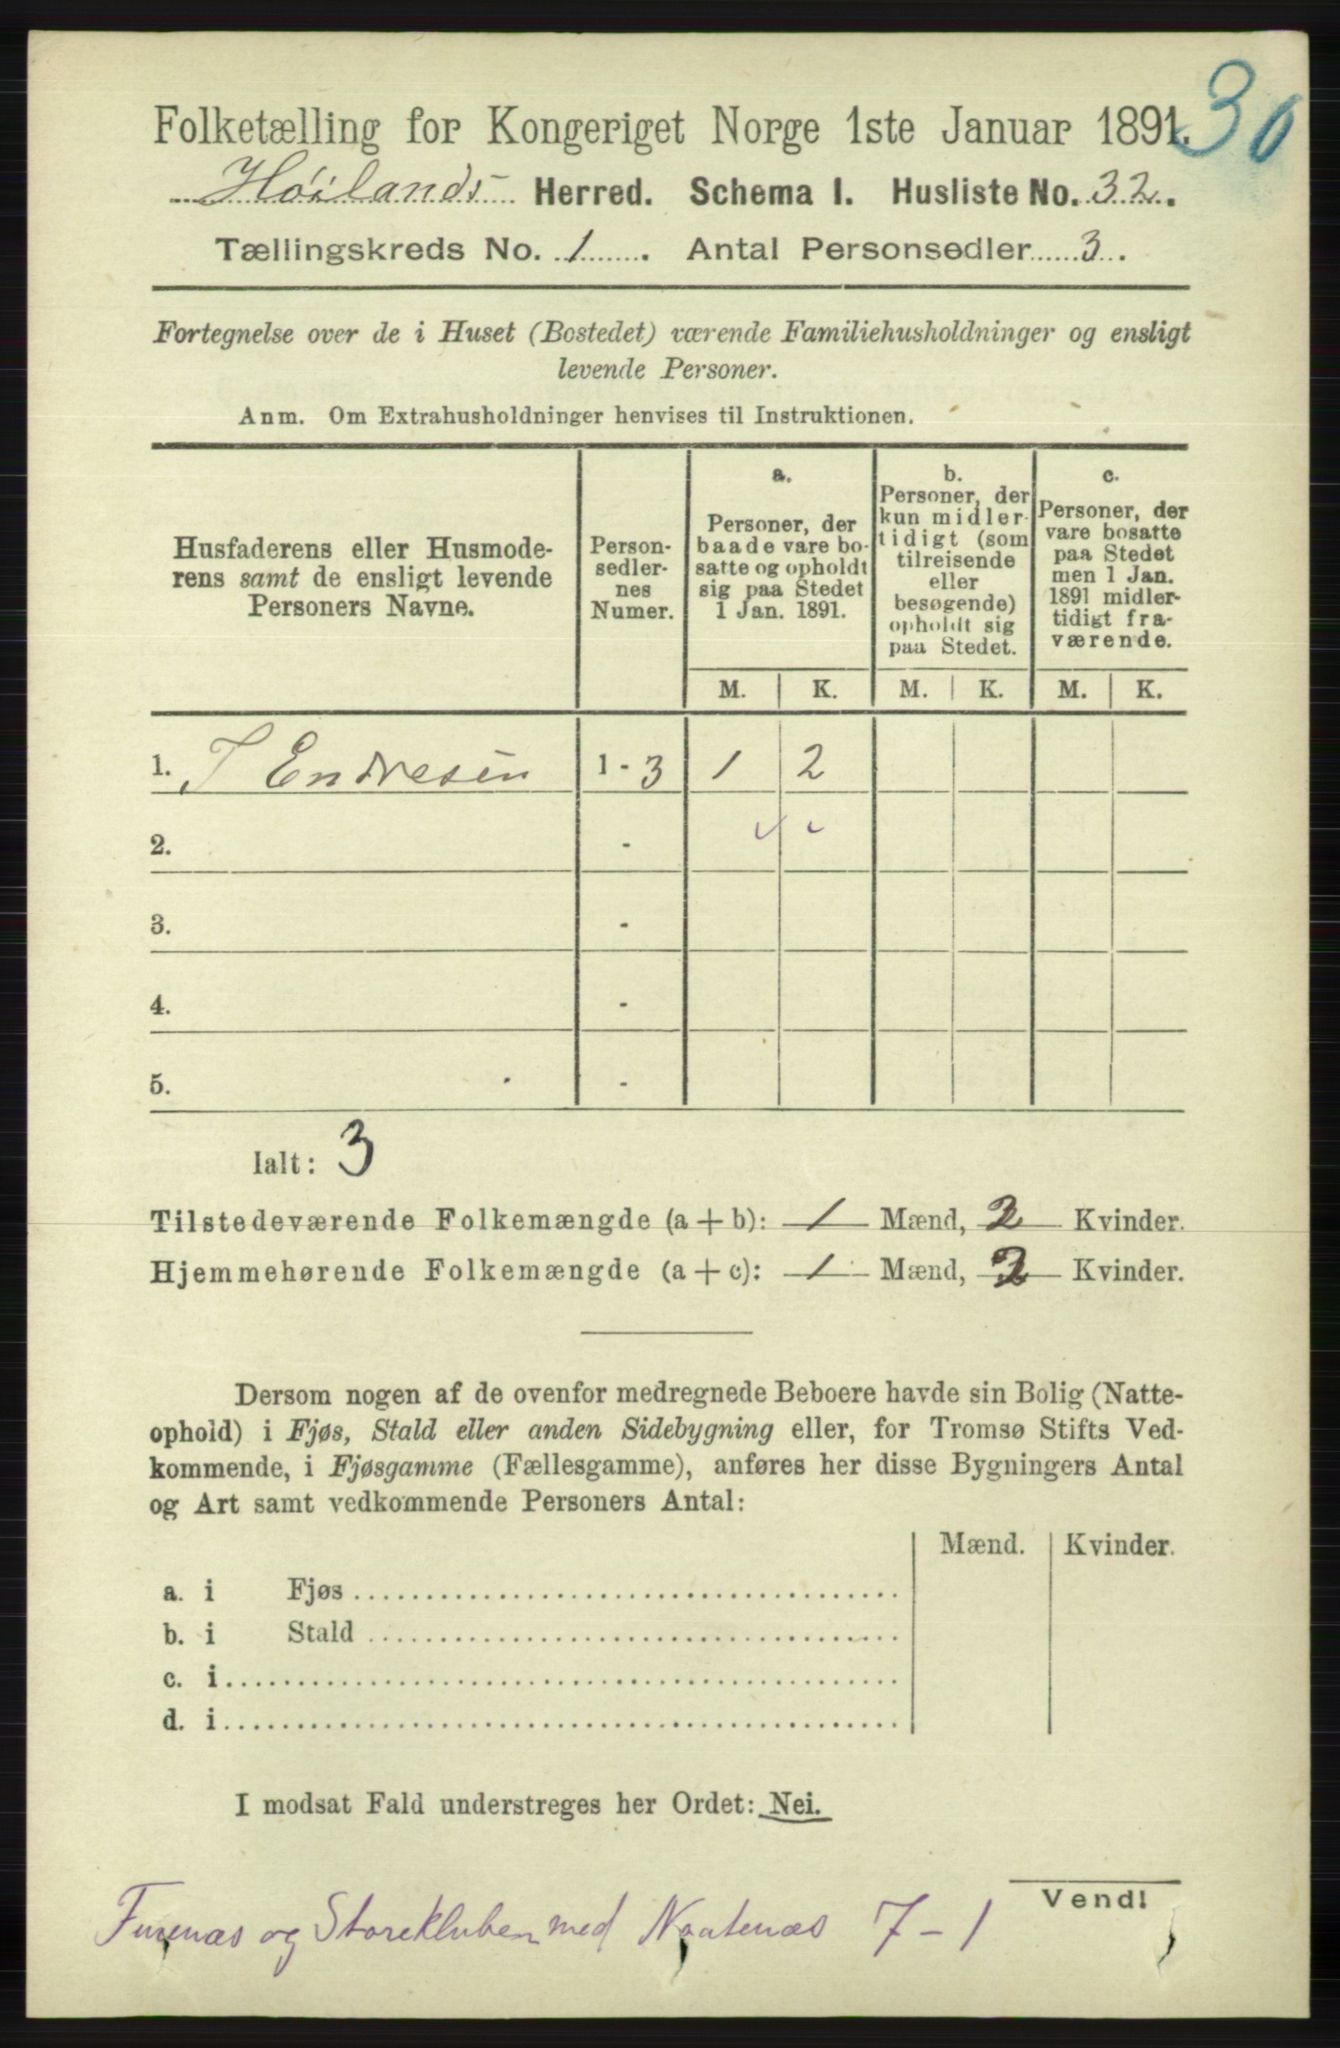 30
Folketælling for Kongeriget Norge 1ste Januar 1891.
Höilands Herred. Schema I. Husliste No. 32.
Tællingskreds No. 1. Antal Personsedler 3.
Fortegnelse over de i Huset (Bostedet) værende Familiehusholdninger og ensligt
levende Personer.
Anm. Om Extrahusholdninger henvises til Instruktionen.
Husfaderens eller Husmode-
rens samt de ensligt levende
Personers Navne.
Person-
sedler-
nes
Numer.
a.
Personer, der
baade vare bo-
satte og opholdt
sig paa Stedet
1 Jan. 1891.
b.
Personer, der
kun midler-
tidigt (som
tilreisende
eller
besøgende)
opholdt sig
paa Stedet.
c.
Personer, der
vare bosatte
paa Stedet
men 1 Jan.
1891 midler-
tidigt fra-
værende.
M. K. M. K. M. K.
1. T Endresen 1 - 3 1 2
2. -
3. -
4. -
5. -
Ialt: 3
Tilstedeværende Folkemængde (a + b): 1 Mænd, 2 Kvinder.
Hjemmehørende Folkemængde (a + c): 1 Mænd, 2 Kvinder.
Dersom nogen af de ovenfor medregnede Beboere havde sin Bolig (Natte-
ophold) i Fjøs, Stald eller anden Sidebygning eller, for Tromsø Stifts Ved-
kommende, i Fjøsgamme (Fællesgamme), anføres her disse Bygningers Antal
og Art samt vedkommende Personers Antal:
Mænd. Kvinder.
a. i Fjøs
b. i Stald
c. i
d. i
I modsat Fald understreges her Ordet: Nei.
Vend!
Furenas og Storekluben med Naatenas 7 - 1